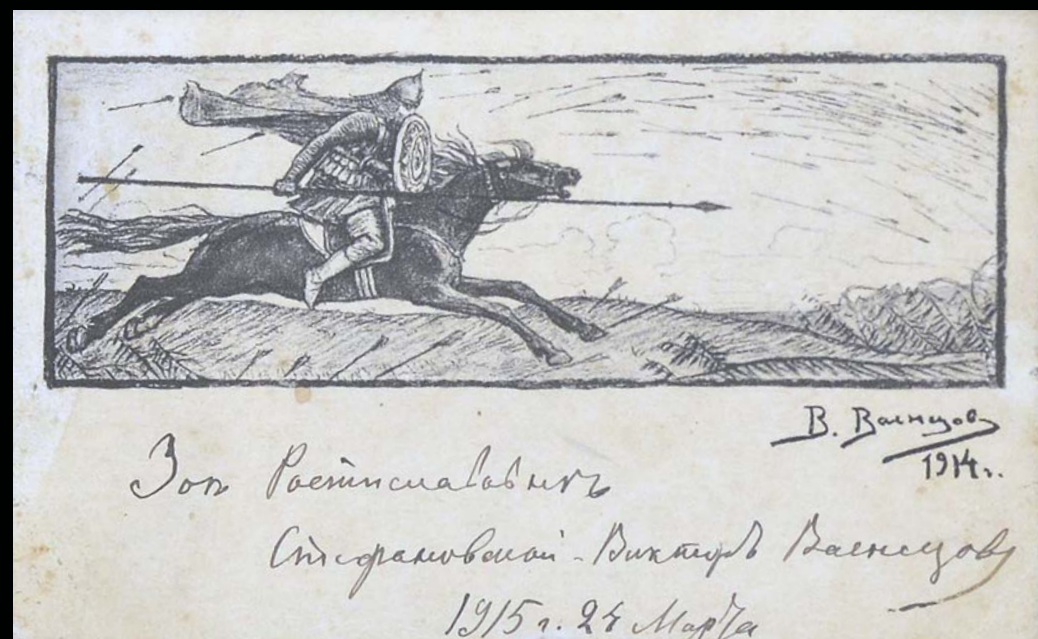 В. Васнецовъ
1914 г.
Зоѣ Ростиславовнѣ
Стефановской - Викторъ Васнецовъ
1915 г. 24 Марта